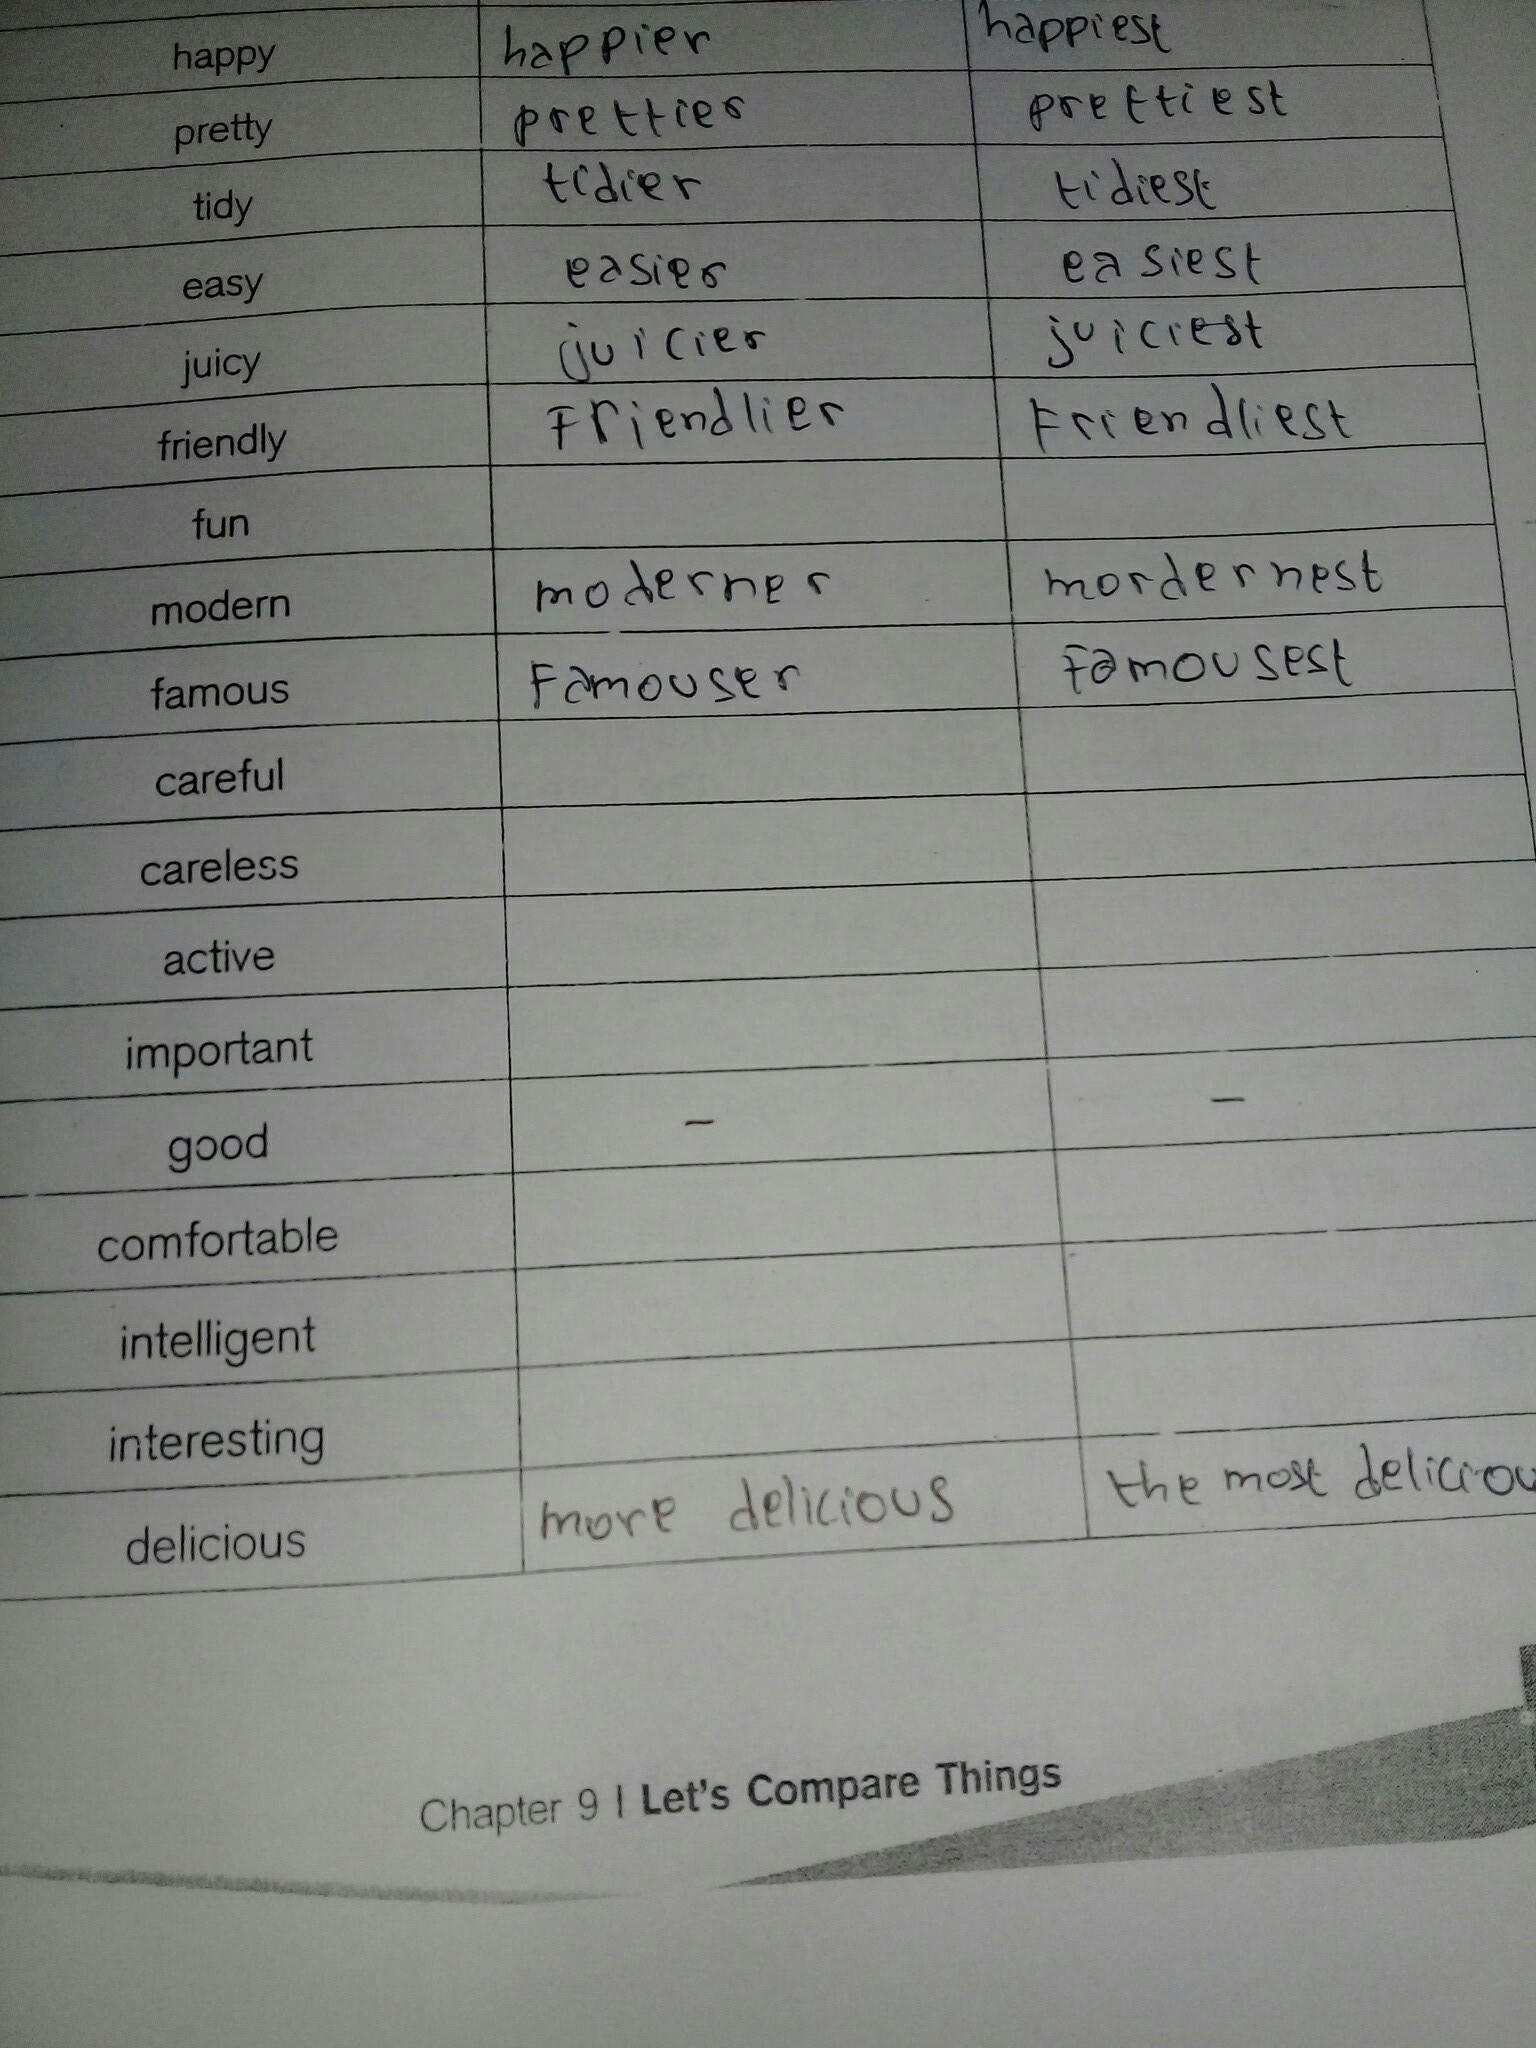 happy happier happiest
pretty prettier prettiest
tidy tidier tidiest
easy easier easiest
juicy juicier juiciest
friendly Friendlier Friendliest
fun
modern moderner mordernest
famous Famouser Famousest
careful
careless
active
important
good – –
comfortable
intelligent
interesting
delicious more delicious the most deliciou
Chapter 9 | Let's Compare Things